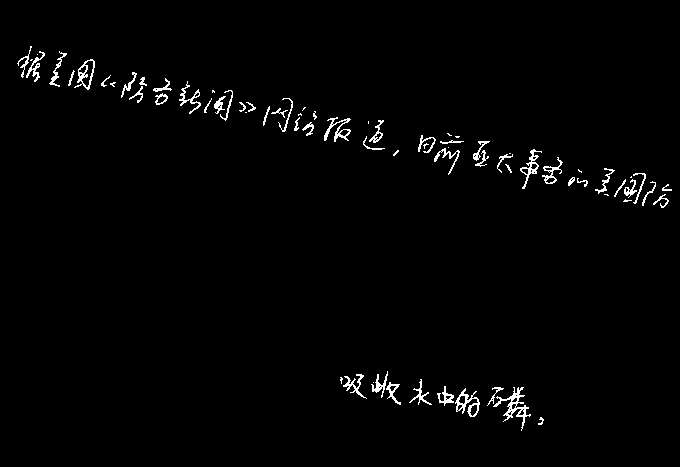 据美国《防务新闻》网络报道，日前亚太事务的美国防
吸收水中的磷。